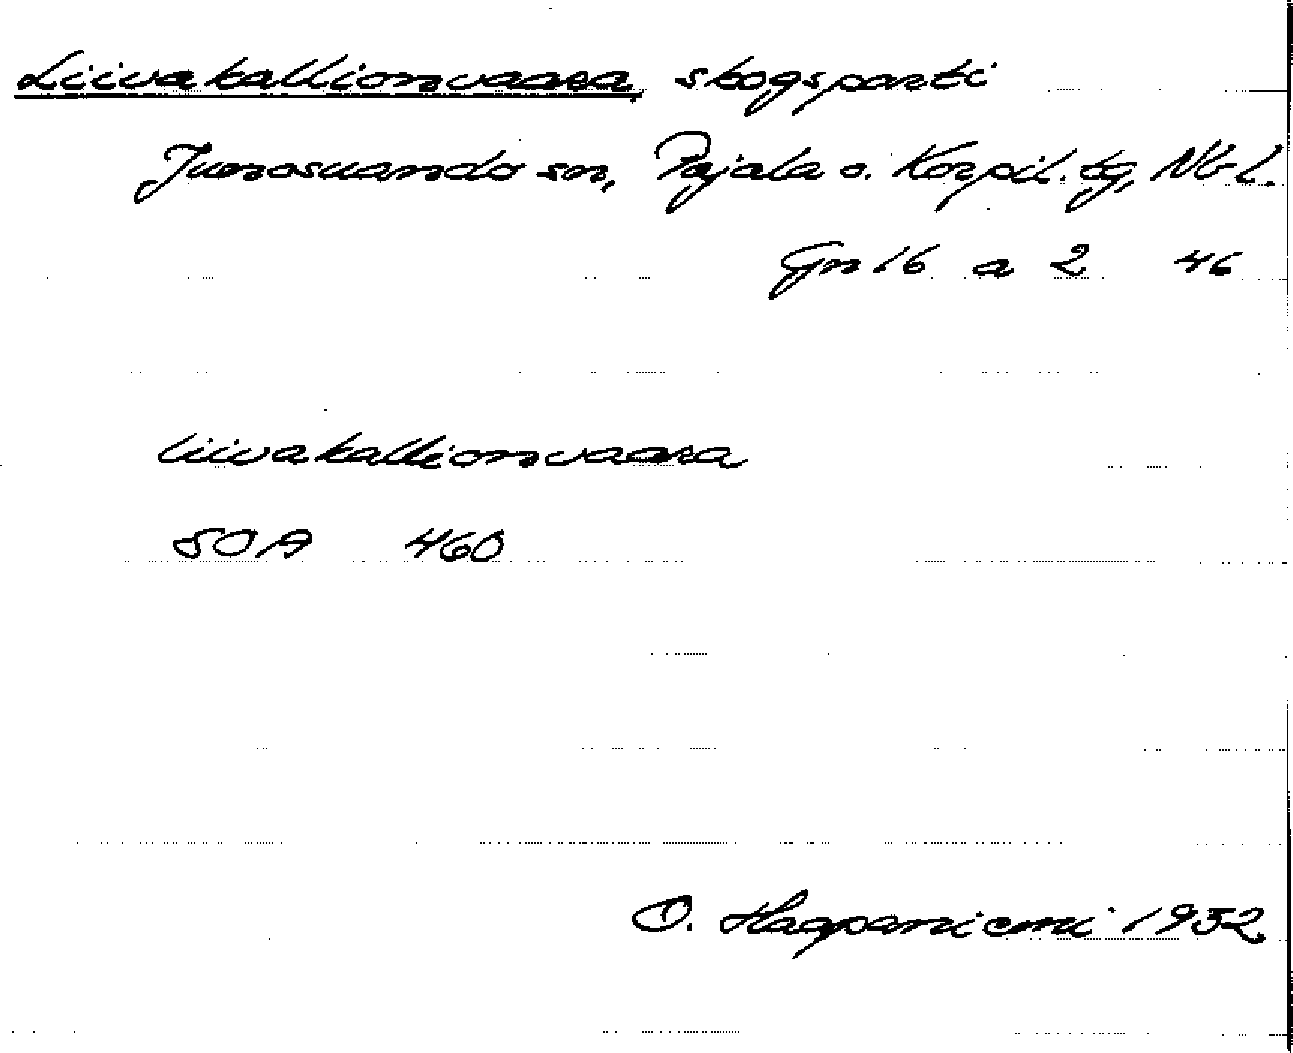 Liivakallionvaara, skogsparti
Junosuando sn, Pajala o. Korpil. tg, Nb l.
Gn 16 a 2 46
Liivakallionvaara
SOA 460
O. Haapaniemi 1952